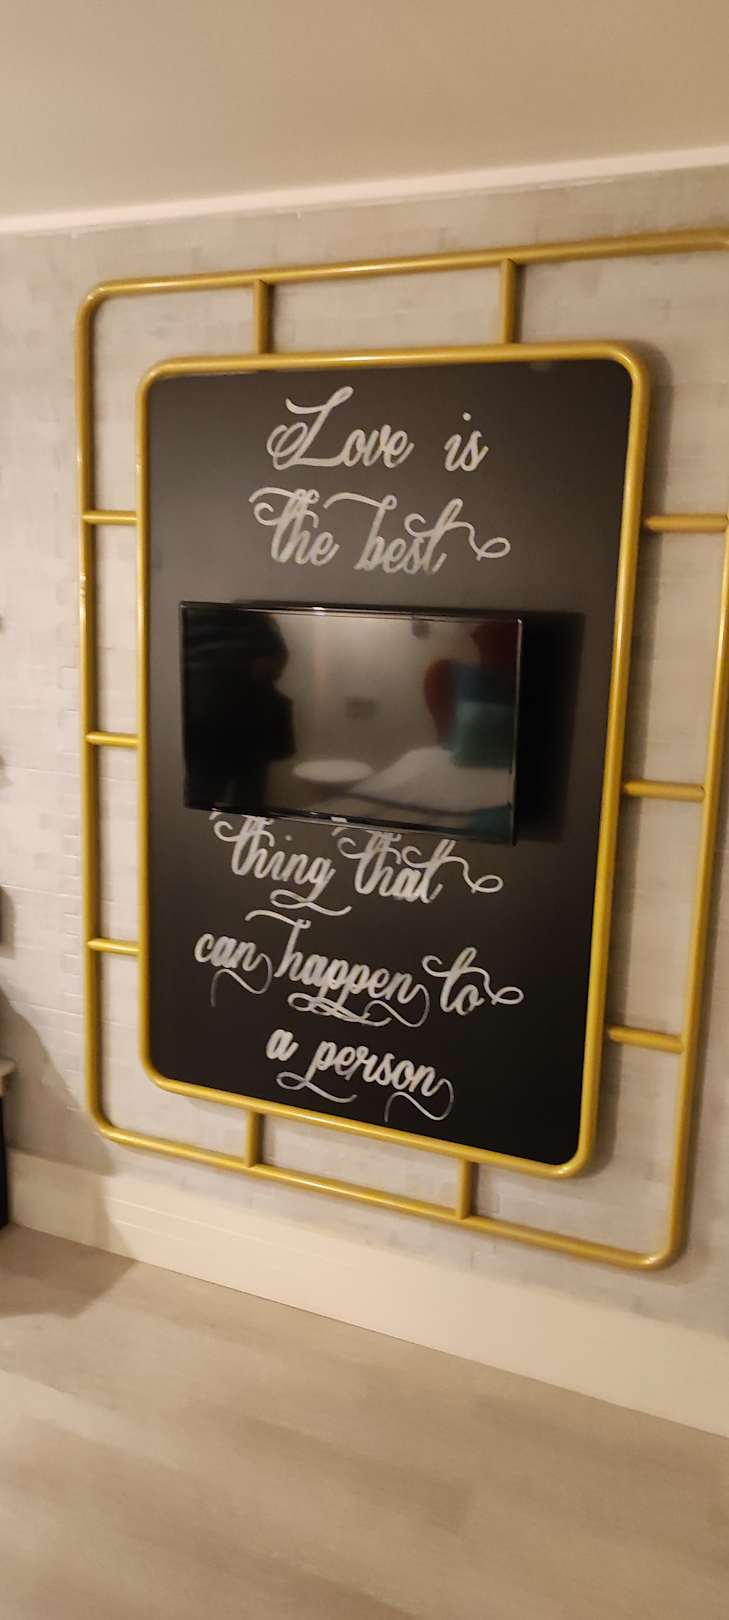 Love is
the best
thing that
can happen to
a person